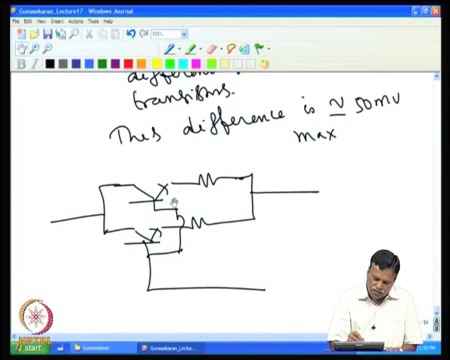 Gunasekaran_Lecture17 - Windows Journal
File Edit View Insert Actions Tools Help
100%
B I
difference
transistors.
This difference is ≃ 50mV
max
start
Gunasekaran
Gunasekaran_Lectu...